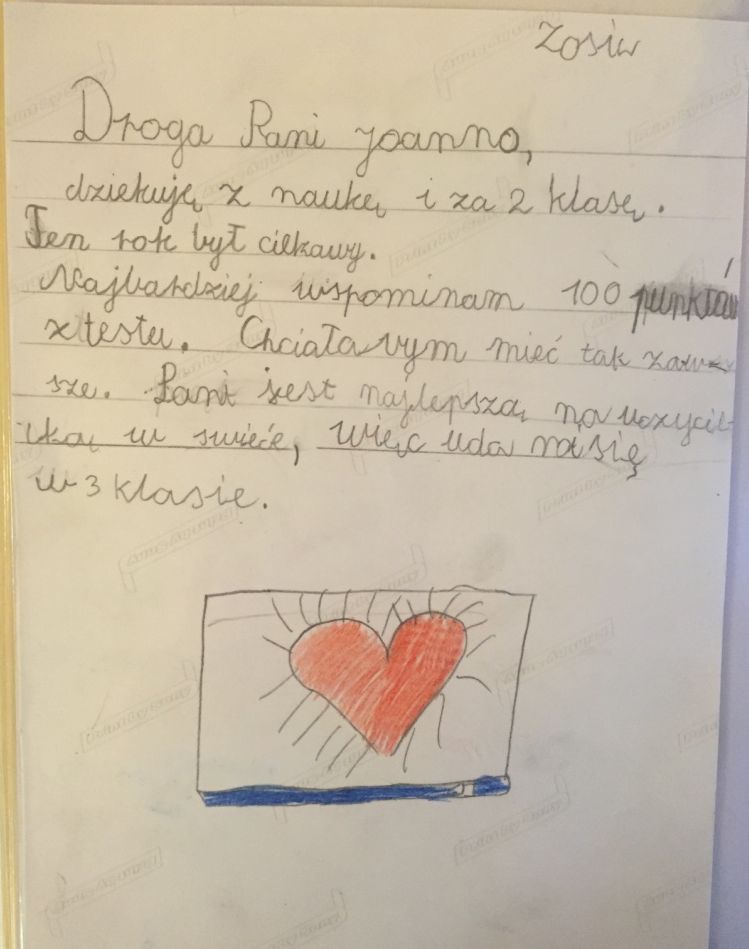 Zosia
Droga Pani Joanno,
dziekuję z naukę i za 2 klasę.
Ten rok był ciekawy.
Najbardziej wspominam 100 punktów
z testu. Chciała bym mieć tak zaw-
sze. Pani jest najlepszą nauczyciel-
ką w swiecie, więc uda na się
w 3 klasie.